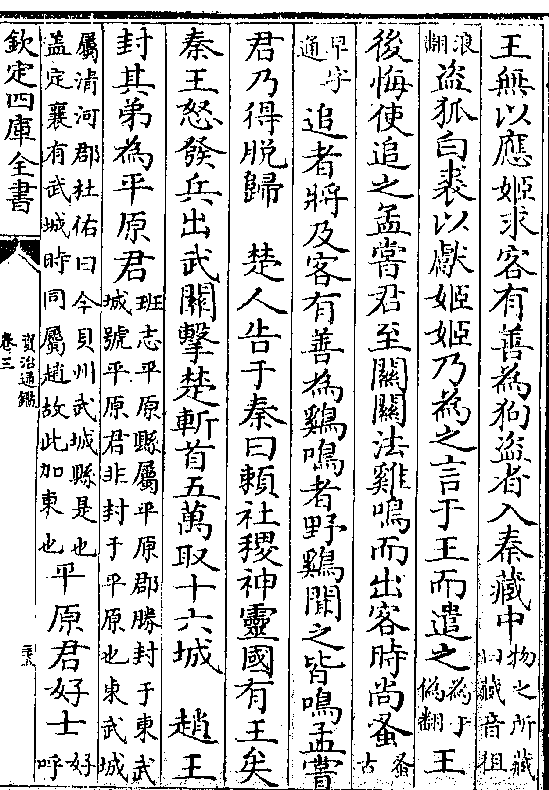 王無以應姬求客有善為狗盜者入秦藏中物之所藏曰藏音徂
浪翻盗狐白裘以獻姬姬乃為之言于王而遣之為于偽翻王
後悔使追之孟嘗君至關關法雞鳴而出客時尚蚤蚤古
早字通追者將及客有善為鷄鳴者野鷄聞之皆鳴孟嘗
君乃得脫歸 楚人告于秦曰賴社稷神靈國有王矣
秦王怒發兵出武關擊楚斬首五萬取十六城 趙王
封其弟為平原君班志平原縣屬平原郡勝封于東武城號平原君非封于平原也東武城
屬清河郡杜佑曰今貝州武城縣是也蓋定襄有武城時同屬趙故此加東也平原君好士好呼
欽定四庫全書
資治通鑑
卷三